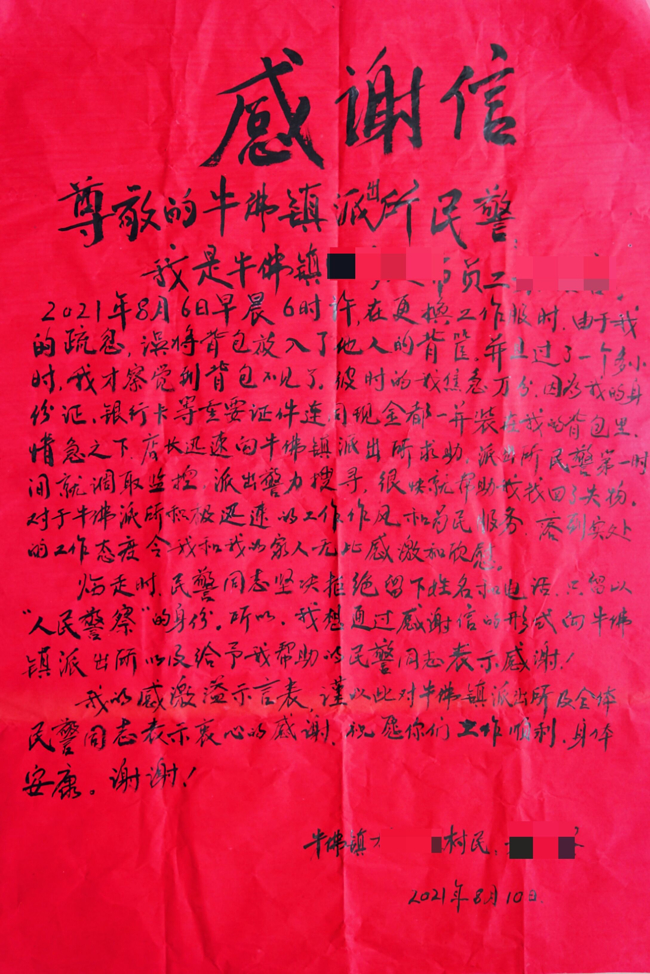 感谢信
尊敬的牛佛镇派出所民警，
我是牛佛镇 员工
2021年8月6日早晨6时许，在更换工作服时，由于我
的疏忽，误将背包放入了他人的背篼，并且过了一个多小
时，我才察觉到背包不见了。彼时的我焦急万份，因为我的身
份证、银行卡等重要证件连同现金都一并装在我的背包里。
情急之下，店长迅速向牛佛镇派出所求助，派出所民警第一时
间就调取监控，派出警力搜寻，很快就帮助我找回了失物。
对于牛佛派所积极迅速的工作作风和为民服务，落到实处
的工作态度令我和我的家人无比感激和欣慰。
临走时，民警同志坚决拒绝留下姓名和电话，只留以
“人民警察”的身份。所以，我想通过感谢信的形式向牛佛
镇派出所以及给予我帮助的民警同志表示感谢！
我的感激溢示言表，谨以此对牛佛镇派出所及全体
民警同志表示衷心的感谢，祝愿你们工作顺利，身体
安康。谢谢！
牛佛镇 村民，
2021年8月10日